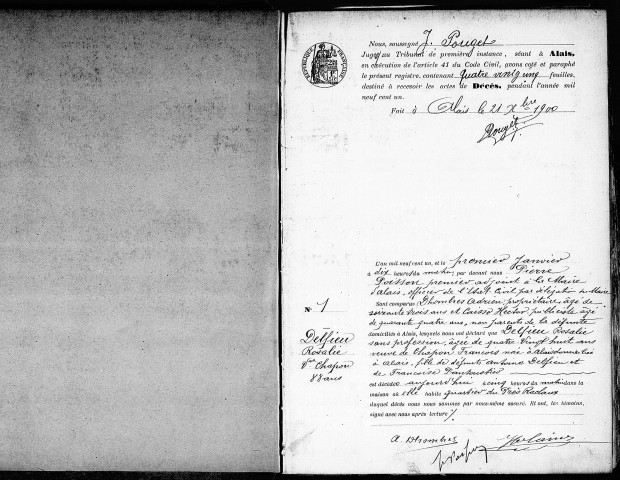 Nous, soussigné J. Pouget
Juge au Tribunal de première instance, séant à Alais,
en exécution de l'article 41 du Code Civil, avons coté et paraphé
le présent registre, contenant Quatre vingt une feuilles,
destiné à recevoir les actes de Décès, pendant l'année mil
neuf cent un.
Fait à Alais le 21 Xbre 1900
Pouget
RÉPUBLIQUE FRANÇAISE
L'an mil neuf cent un, et le premier Janvier
à dix heures du matin, par devant nous Pierre
Poisson premier adjoint à la Mairie
d'Alais, officier de l'Etat Civil par délégation du Maire
Sont comparus Dhombres Adrien, propriétaire, âgé de
soixante trois ans et Hector, publiciste âgé
de quarante quatre ans, non parents de la défunte
N° 1
Delfieu
Rosalie
Vve Chapon
88 ans
domiciliés à Alais, lesquels nous ont déclaré que Delfieu Rosalie
sans profession, âgée de quatre vingt huit ans
veuve de Chapon François née à domiciliée
à Alais, fille de défunts Antoine Delfieu et
de Françoise
est décédée aujourd'hui cinq heures du matin dans la
maison où elle habite quartier du
duquel décès nous nous sommes par nous-même assuré. Et ont, les témoins,
signé avec nous après lecture.
A. Dhombres